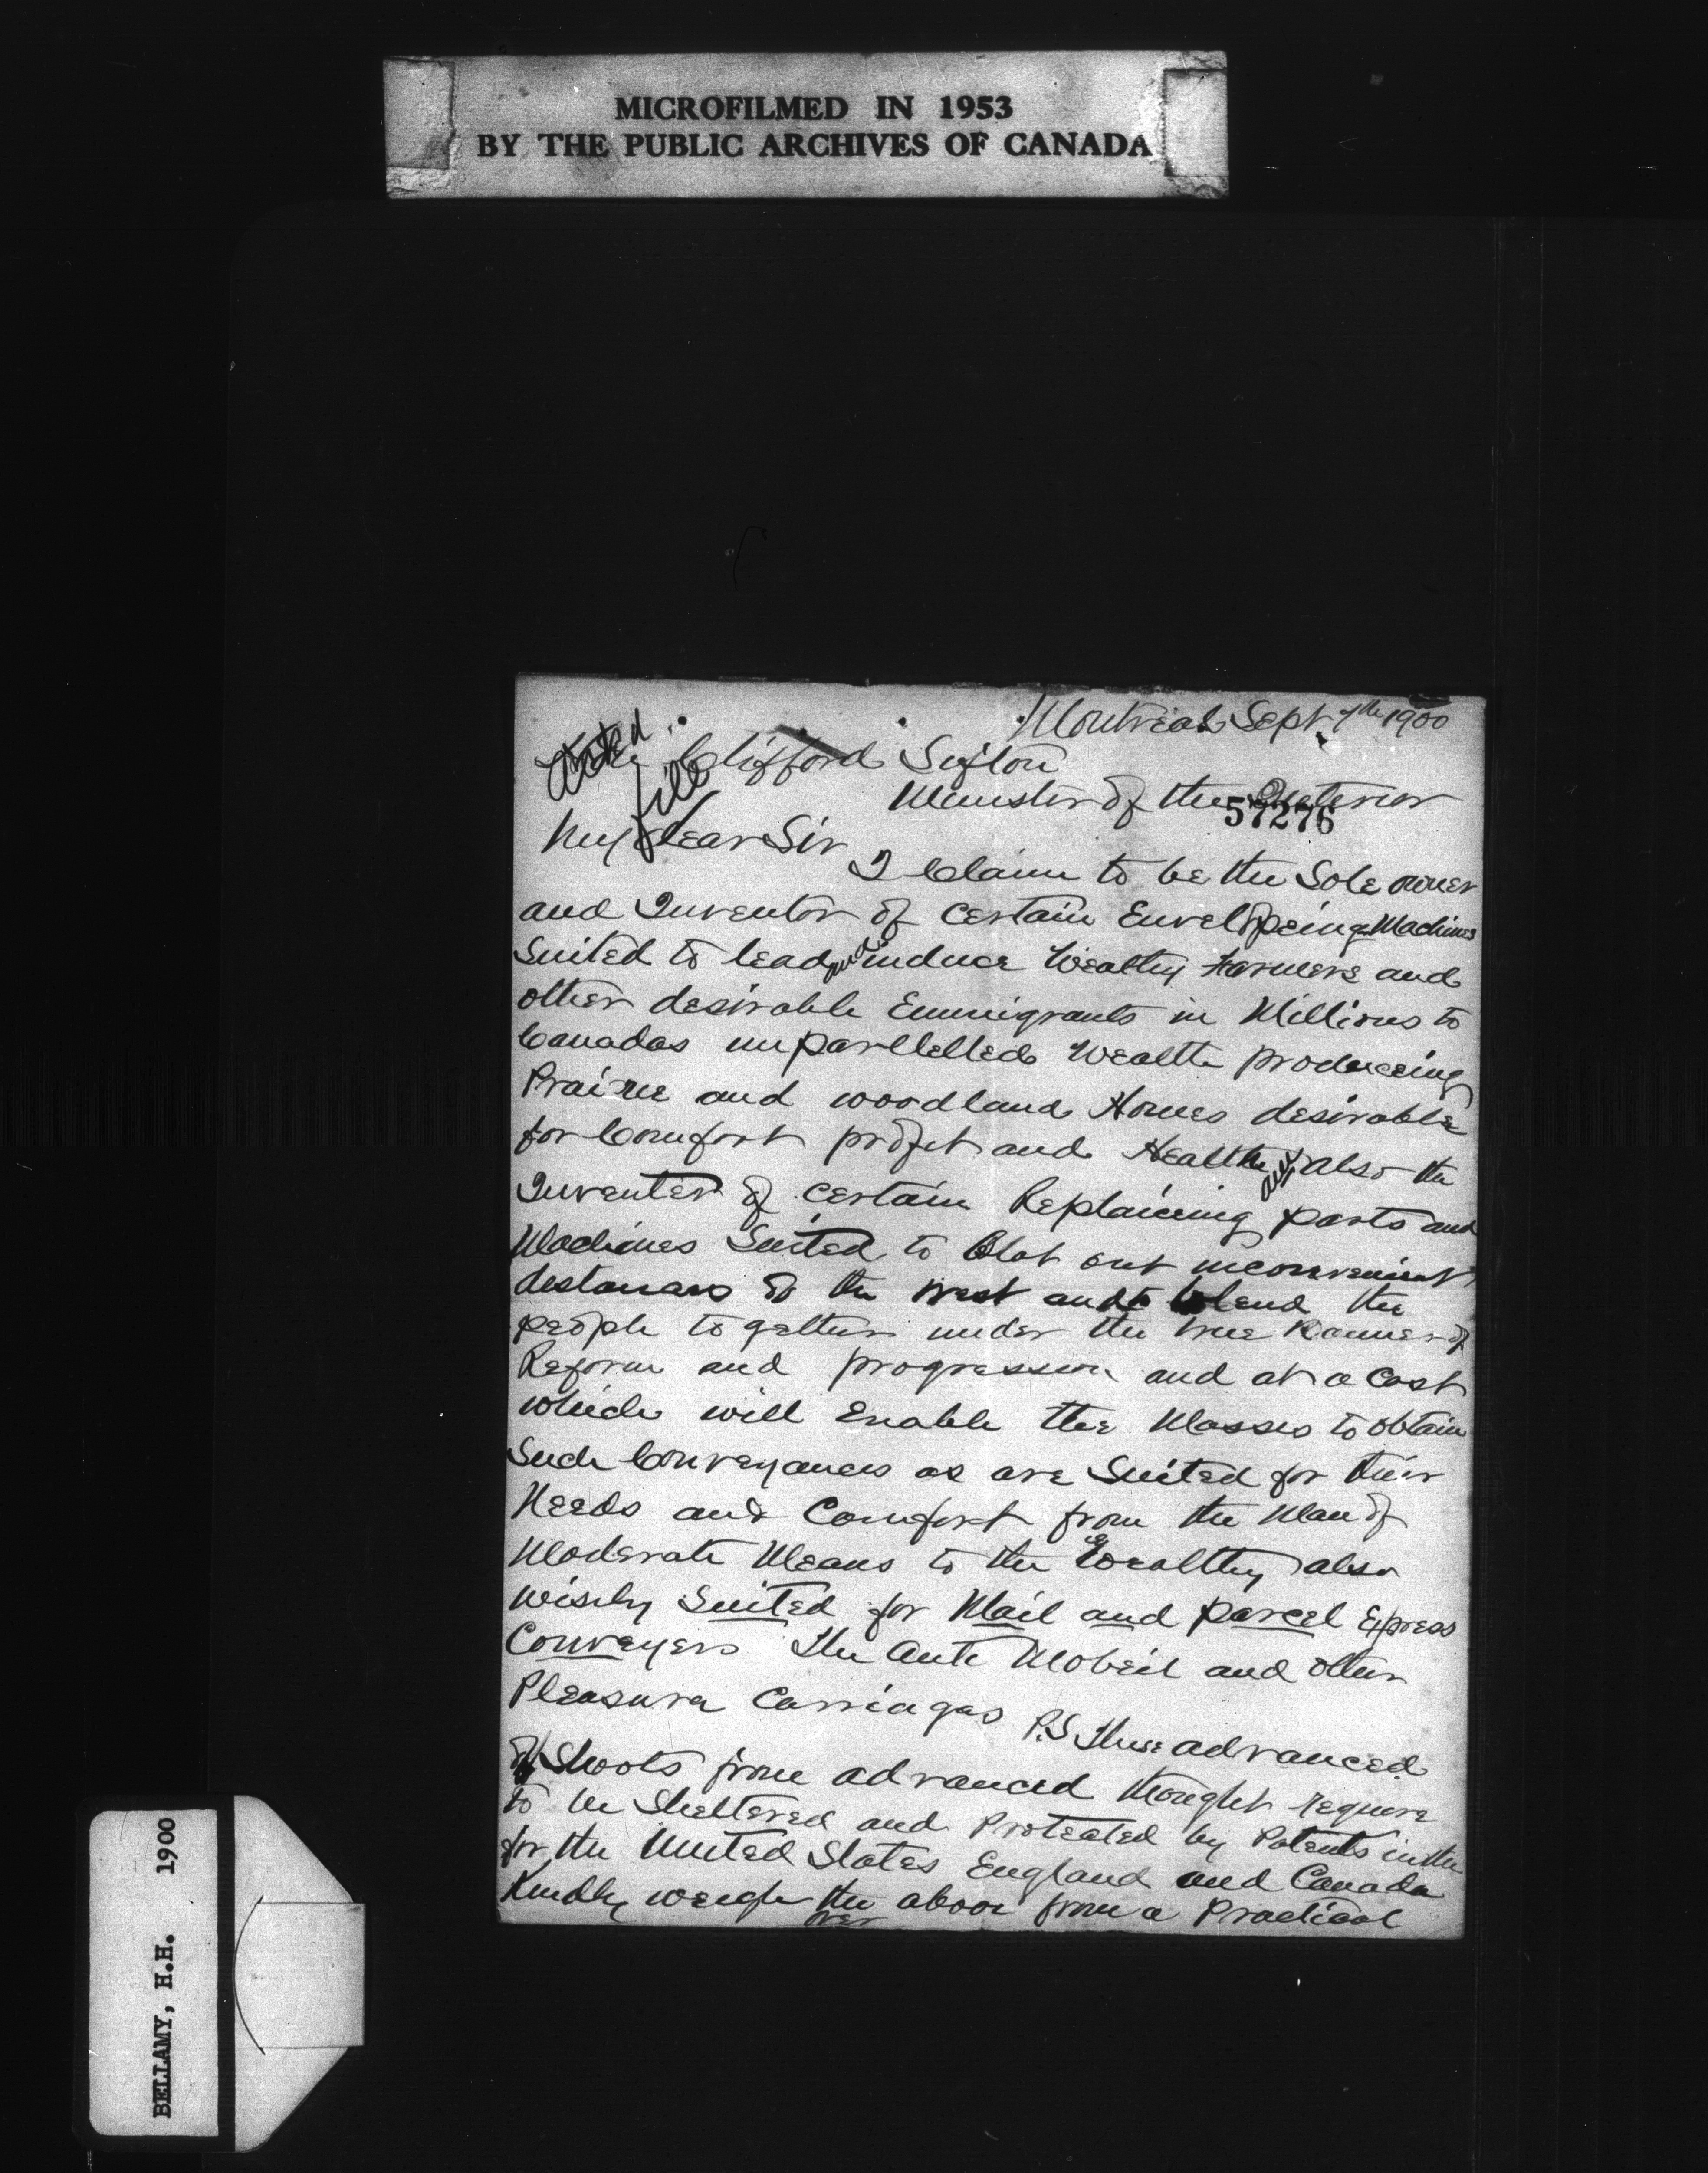 MICROFILMED IN 1953
BY THE PUBLIC ARCHIVES OF CANADA
Montreal Sept 7th 1900
Clifford Sifton
Minister of the Interior
57276
file
My dear Sir
I Claim to be the Sole owner
and Inventor of certain Envelopeing Machines
Suited to lead and induce Wealthy Farmers and
other desirable Emmigrants in Millions to
Canadas unparllelled Wealth produceing
Prairie and woodland Homes desirable
for Comfort profit and Health also the
Inventer of certain Replaicing parts and
Machines Suited to Blot out inconvenient
distances of the west and to blend the
people together under the true Banner of
Reform and progression and at a Cost
which will Enable the Masses to obtain
Such Conveyances as are Suited for their
Needs and Comfort from the Man of
Moderate Means to the Wealthy also
wisely Suited for Mail and parcel Express
Conveyers The Auto Mobeil and other
Pleasure Carriages
P.S These advanced
of Shoots from advanced thought require
to be Sheltered and Protected by Patents in the
for the United States England and Canada
Kindly weigh the above from a Practical
over
BELLAMY, H.H. 1900